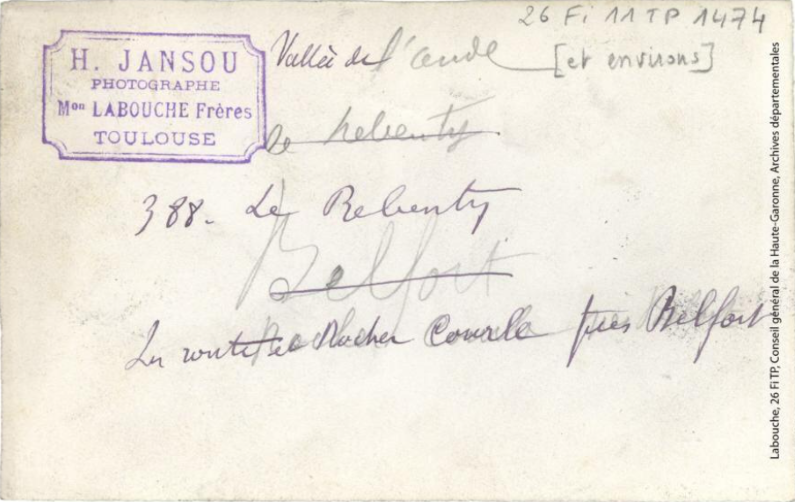 26 Fi 11 TP 1474
H. JANSOU
PHOTOGRAPHE
Mon LABOUCHE Frères
TOULOUSE
Vallée de l'aude [et environs]
Rebenty
388 - Le Rebenty
Belfort
La route et Rocher près Belfort
Labouche, 26 Fi TP, Conseil général de la Haute-Garonne, Archives départementales